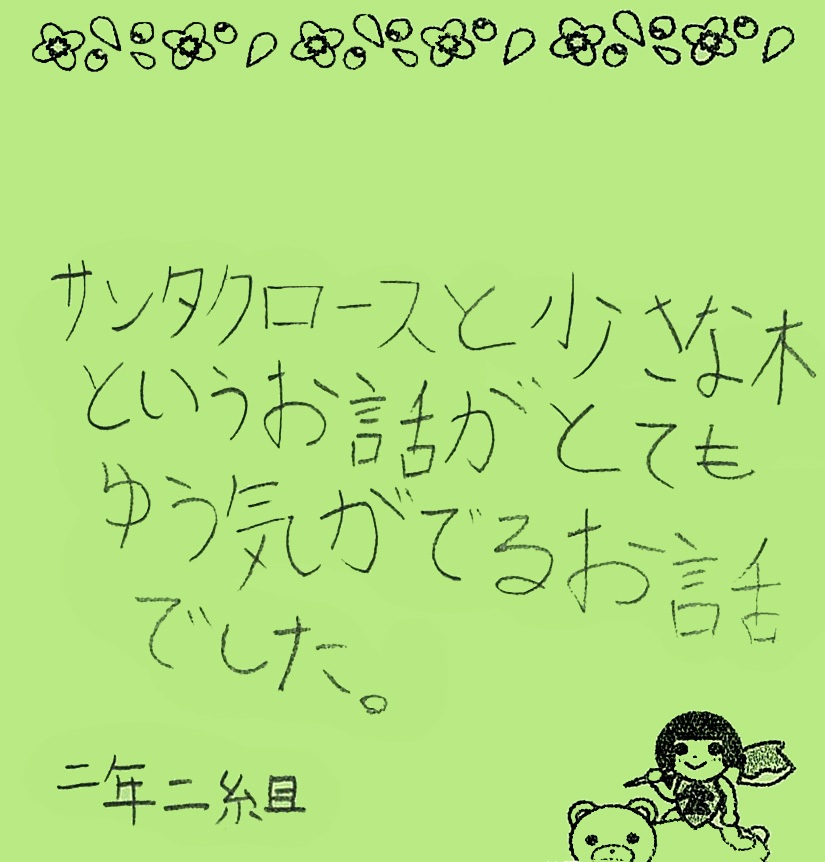 サンタクロースと小さな木
というお話がとても
ゆう気がでるお話
でした。
二年二組